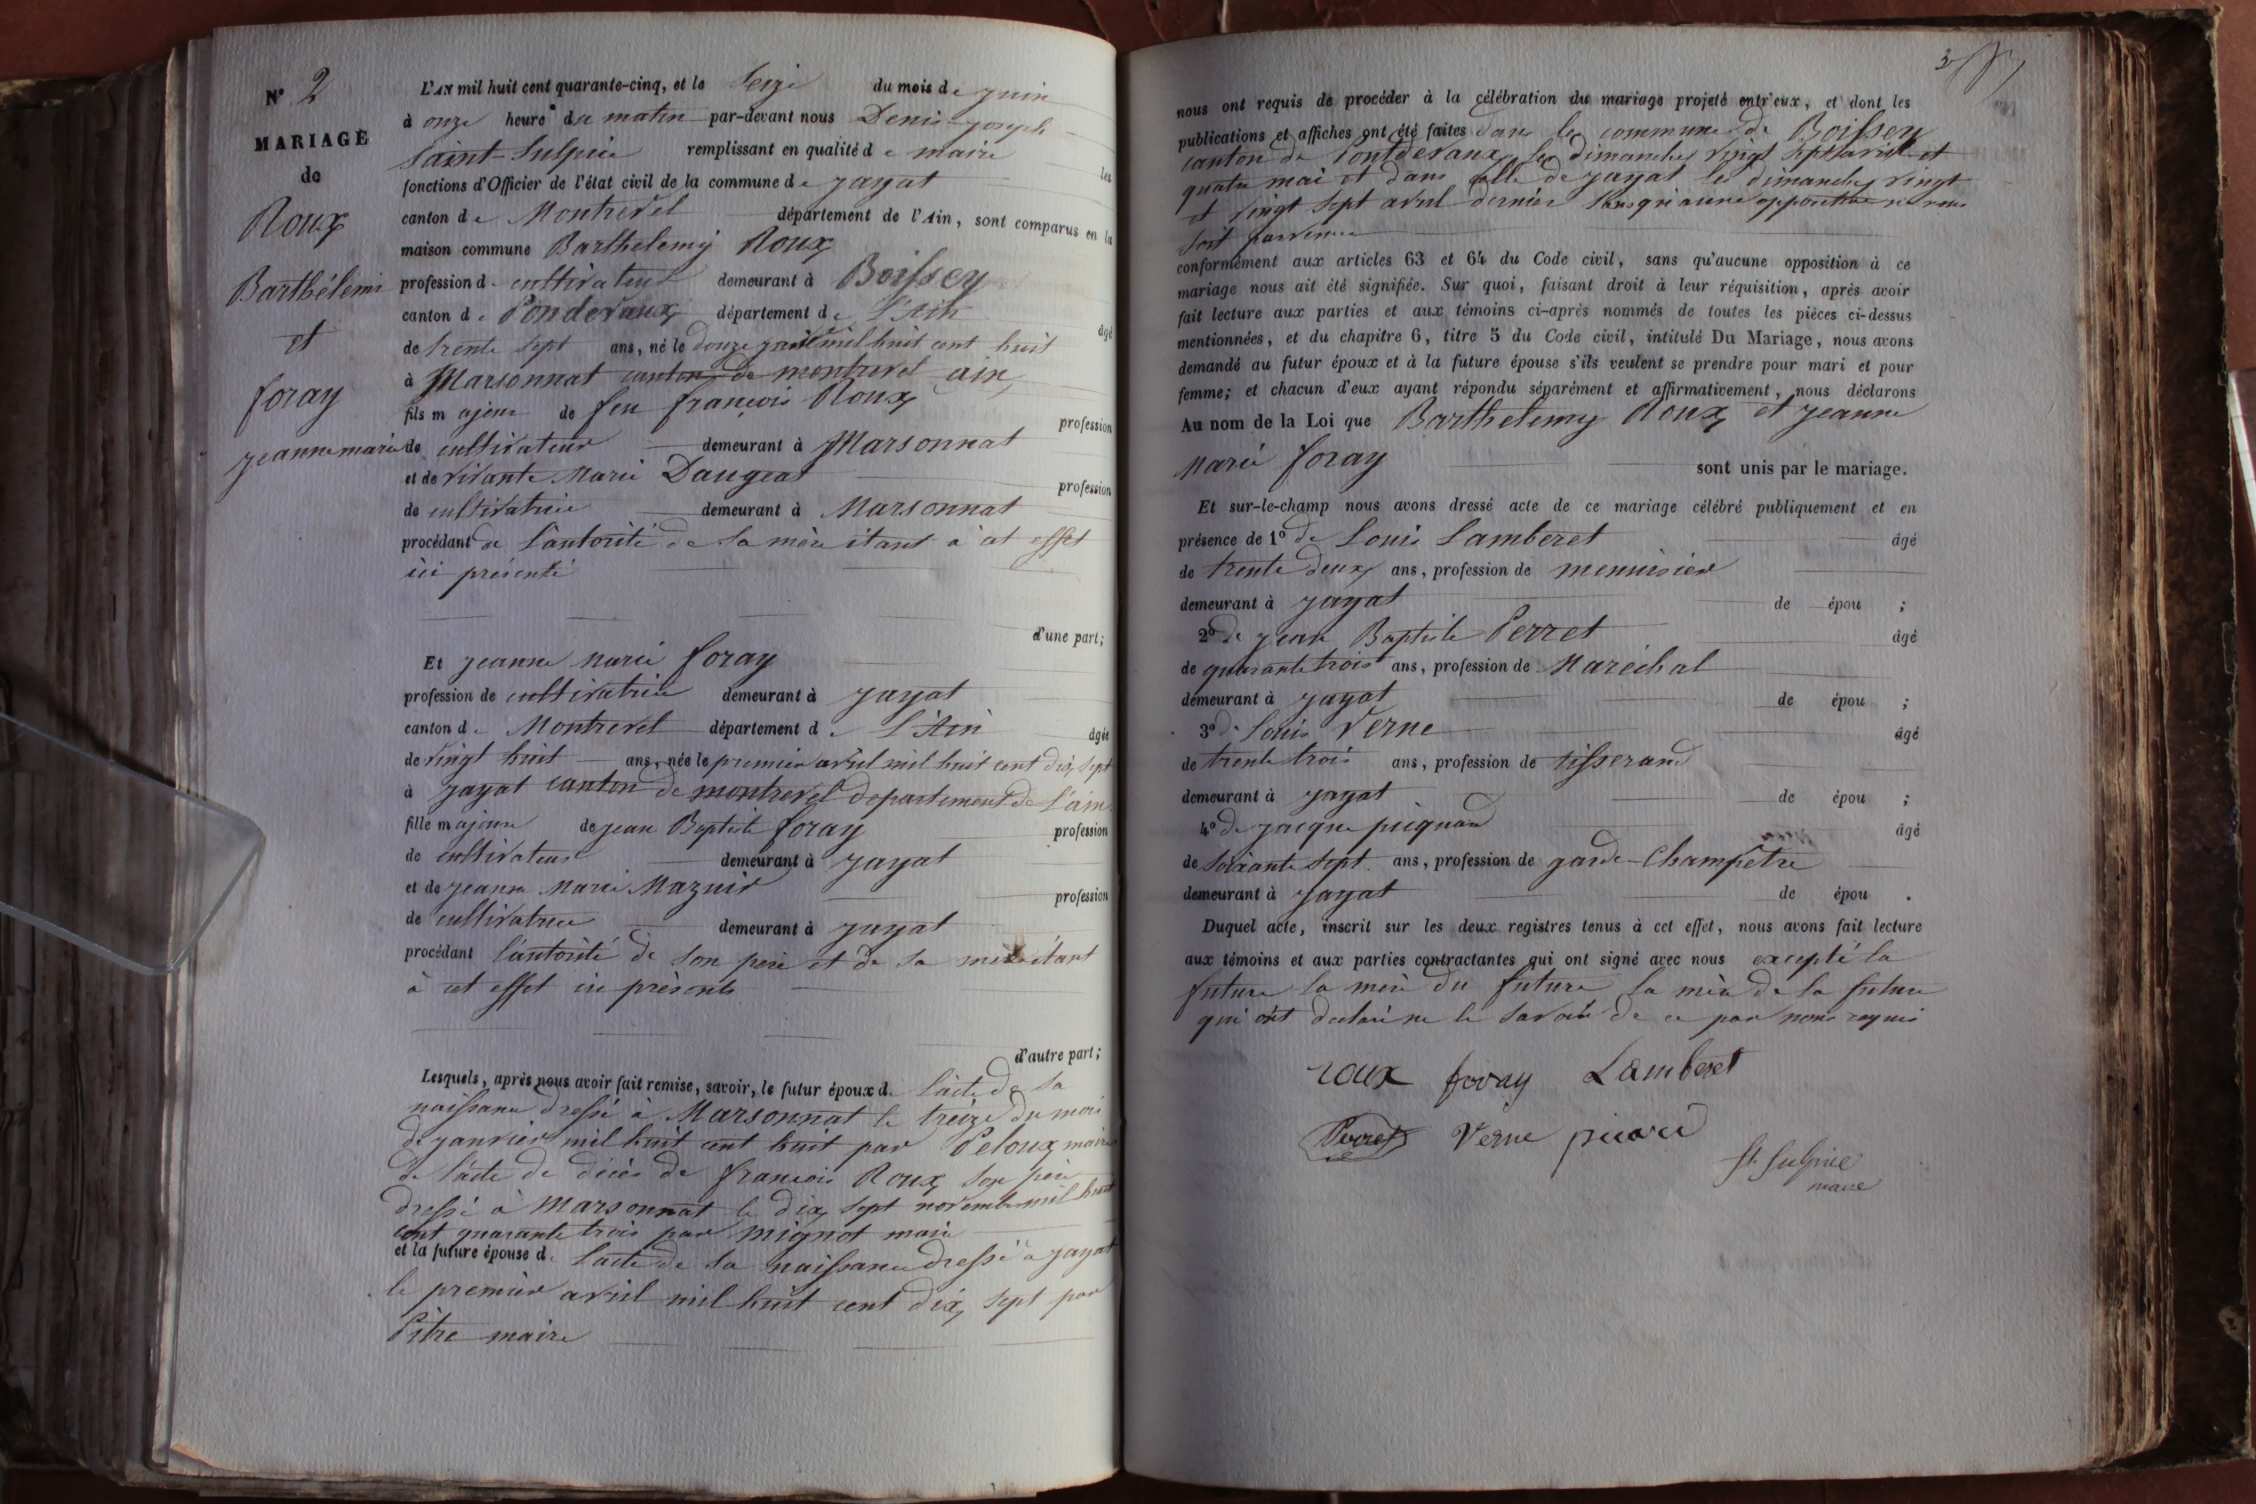 N° 2
MARIAGE
de
Roux
Barthélemi
et
foray
jeanne marie
L'AN mil huit cent quarante-cinq, et le Seize du mois de juin
à onze heure du matin par-devant nous Denis joseph
Saint-Sulpice remplissant en qualité de maire les
fonctions d'Officier de l'état civil de la commune de jayat
canton de Montrevel département de l'Ain, sont comparus en la
maison commune Barthelemy Roux
profession d. cultivateur demeurant à Boissey
canton de Pondevaux département de L'Ain âgé
de trente sept ans, né le douze janvier mil huit cent huit
à Marsonnat canton de montrevel ain
fils majeur de feu françois Roux profession
de cultivateur demeurant à Marsonnat
et de vivante Marie Daugeat profession
de cultivatrice demeurant à Marsonnat
procédant de l'autorité de sa mère étant à cet effet
ici présente
d'une part;
Et jeanne marie foray
profession de cultivatrice demeurant à jayat
canton de Montrevel département de L'Ain âgée
de vingt huit ans, née le premier avril mil huit cent dix sept
à jayat canton de montrevel departement de l'ain
fille majeure de jean Baptiste foray profession
de cultivateur demeurant à jayat
et de jeanne Marie Mazuir profession
de cultivatrice demeurant à jayat
procédant l'autorité de son père et de sa mère étant
à cet effet ici présents
d'autre part;
Lesquels, après nous avoir fait remise, savoir, le futur époux de l'acte de sa
naissance dressé à Marsonnat le treize du mois
de janvier mil huit cent huit par Peloux maire
de l'acte de décès de francois Roux son père
dressé à Marsonnat le dix sept novembre mil huit
cent quarante trois par mignot maire
et la future épouse de l'acte de sa naissance dressé à jayat
le premier avril mil huit cent dix sept par
Pitre maire
nous ont requis de procéder à la célébration du mariage projeté entr'eux, et dont les
publications et affiches ont été faites dans la commune de Boissey
canton de Pontdevaux les dimanches vingt sept avril et
quatre mai et dans celle de jayat les dimanches vingt
et vingt sept avril dernier sans qu'aucune opposition ne nous
soit parvenue
conformément aux articles 63 et 64 du Code civil, sans qu'aucune opposition à ce
mariage nous ait été signifiée. Sur quoi, faisant droit à leur réquisition, après avoir
fait lecture aux parties et aux témoins ci-après nommés de toutes les pièces ci-dessus
mentionnées, et du chapitre 6, titre 5 du Code civil, intitulé Du Mariage, nous avons
demandé au futur époux et à la future épouse s'ils veulent se prendre pour mari et pour
femme; et chacun d'eux ayant répondu séparément et affirmativement, nous déclarons
Au nom de la Loi que Barthelemy Roux et jeanne
marie foray sont unis par le mariage.
Et sur-le-champ nous avons dressé acte de ce mariage célébré publiquement et en
présence de 1° de Louis Lamberet âgé
de trente deux ans, profession de menuisier
demeurant à jayat de épou ;
2° de jean Baptiste Perret âgé
de quarante trois ans, profession de Maréchal
demeurant à jayat de épou ;
3° de Louis Verne âgé
de trente trois ans, profession de tisserand
demeurant à jayat de épou ;
4° de jacque âgé
de soixante sept ans, profession de garde-Champêtre
demeurant à jayat de épou .
Duquel acte, inscrit sur les deux registres tenus à cet effet, nous avons fait lecture
aux témoins et aux parties contractantes qui ont signé avec nous excepté la
future la mère du future la mère de la future
qui ont declaré ne le savoir de ce par nous requis
roux foray Lamberet
Perret Verne
St Sulpice
maire